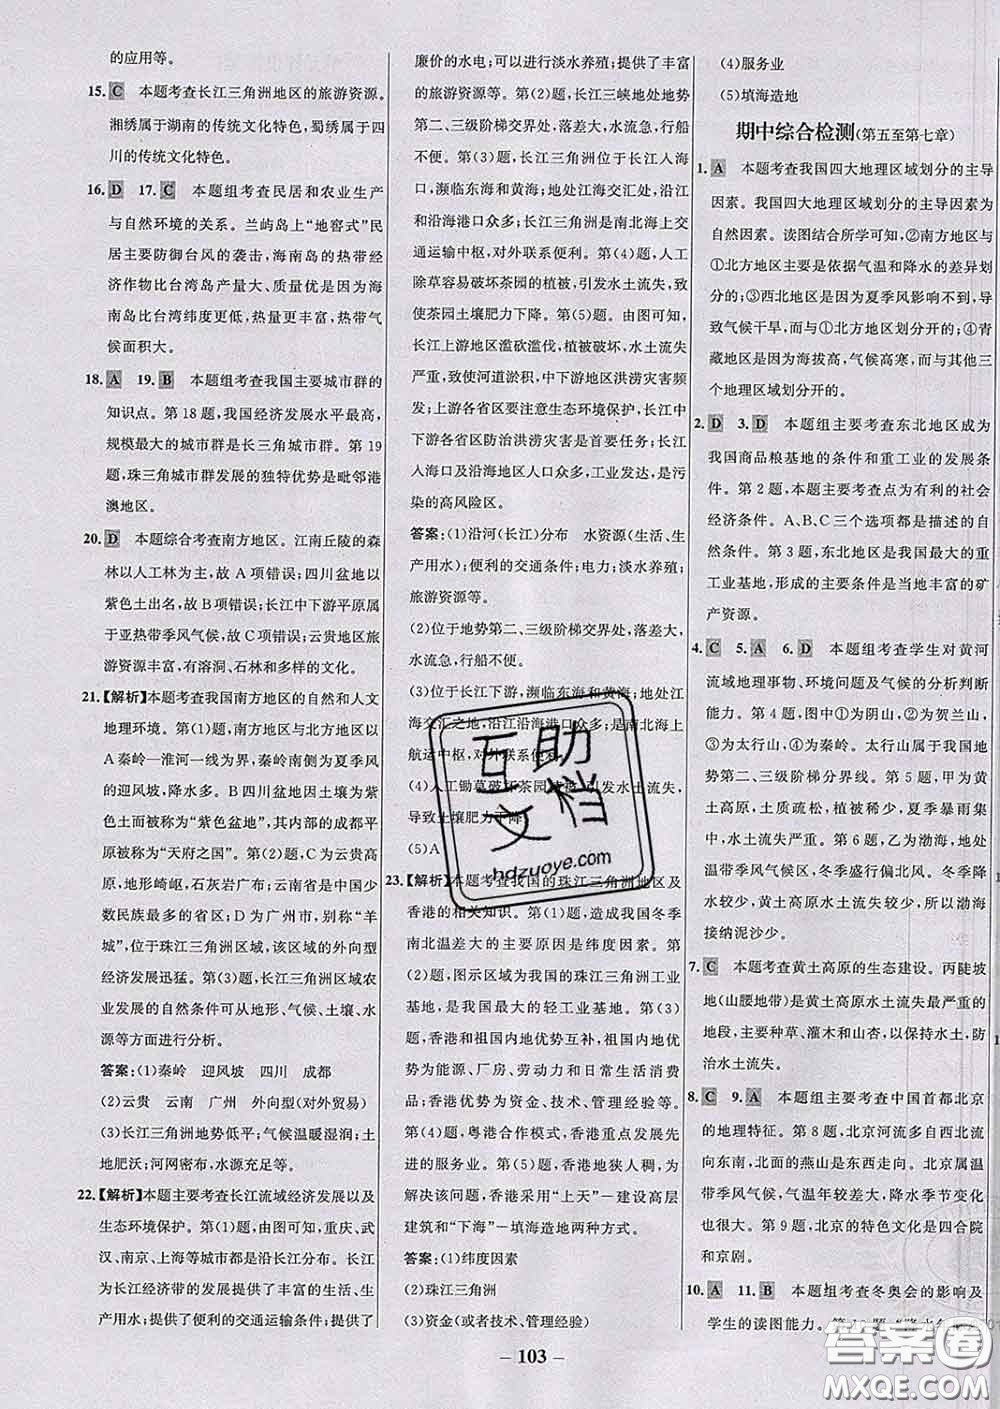 的应用等。
15. C 本题考查长江三角洲地区的旅游资源。
湘绣属于湖南的传统文化特色,蜀绣属于四
川的传统文化特色。
16. D 17. C 本题组考查民居和农业生产
与自然环境的关系。兰屿岛上“地窖式”民
居主要防御台风的袭击,海南岛的热带经
济作物比台湾岛产量大、质量优是因为海
南岛比台湾纬度更低,热量更丰富,热带气
候面积大。
18. A 19. B 本题组考查我国主要城市群的
知识点。第18题,我国经济发展水平最高,
规模最大的城市群是长三角城市群。第19
题,珠三角城市群发展的独特优势是毗邻港
澳地区。
20. D 本题综合考查南方地区。江南丘陵的森
林以人工林为主,故A项错误;四川盆地以
紫色土出名,故B项错误;长江中下游平原属
于亚热带季风气候,故C项错误;云贵地区旅
游资源丰富,有溶洞、石林和多样的文化。
21.【解析】本题考查我国南方地区的自然和人文
地理环境。第(1)题,南方地区与北方地区以
A秦岭—淮河一线为界,秦岭南侧为夏季风
的迎风坡,降水多。B四川盆地因其内有紫
色土而被称为“紫色盆地”,其内部的成都平
原被称为“天府之国”。第(2)题,C为云贵高
原,地形崎岖,石灰岩广布;云南省是中国少
数民族最多的省区;D为广州市,别称“羊
城”,位于珠江三角洲区域,该区域的外向型
经济发展迅猛。第(3)题,长江三角洲区域农
业发展的自然条件可从地形、气候、土壤、水
源等方面进行分析。
答案:(1)秦岭 迎风坡 四川 成都
(2)云贵 云南 广州 外向型(对外贸易)
(3)长江三角洲地势低平;气候温暖湿润;土
地肥沃;河网密布,水源充足等。
22.【解析】本题主要考查长江流域经济发展以及
生态环境保护。第(1)题,由图可知,重庆、武
汉、南京、上海等城市都是沿长江分布。长江
为长江经济带的发展提供了丰富的生活、生
产用水;提供了便利的交通运输条件;提供了
廉价的水电;可以进行淡水养殖;提供了丰富
的旅游资源等。第(2)题,长江三峡地处地势
第二、三级阶梯交界处,落差大,水流急,行船
不便。第(3)题,长江三角洲位于长江入海
口,濒临东海和黄海;地处江海交汇处,沿江
和沿海港口众多;长江三角洲是南北海上交
通运输中枢,对外联系便利。第(4)题,人工
除草容易破坏茶园的植被,引发水土流失,导
致茶园土壤肥力下降。第(5)题。由图可知,
长江上游地区滥砍滥伐,植被破坏,水土流失
严重,致使河道淤积,中下游地区洪涝灾害频
发;上游各省区要注意生态环境保护,长江中
下游各省区防治洪涝灾害的任务重;长江入
海口及沿海地区人口众多,工业发达,是污
染的高风险区。
答案:(1)沿河(长江)分布 水资源(生活、生
产用水);便利的交通条件;电力;淡水养殖;
旅游资源等。
(2)位于地势第二、三级阶梯交界处,落差大,
水流急,行船不便。
(3)位于长江下游,濒临东海和黄海;地处江
海交汇之地,沿江沿海港口众多;是南北海上
航运中枢,对外联系便利。
(4)人工锄草破坏茶园植被,引发水土流失,
导致土壤肥力下降。
(5)A
23.【解析】本题考查我国的珠江三角洲地区及
香港的相关知识。第(1)题,造成我国冬季
南北温差大的主要原因是纬度因素。第
(2)题,图示区域为我国的珠江三角洲工业
基地,是我国最大的轻工业基地。第(3)
题,香港和祖国内地优势互补,祖国内地优
势为能源、厂房、劳动力和日常生活用品
等;香港优势为资金、技术、管理经验等。
第(4)题,粤港合作模式,香港重点发展先
进的服务业。第(5)题,香港地狭人稠,为
解决该问题,香港采用“上天”—建设高层
建筑和“下海”—填海造地两种方式。
答案:(1)纬度因素
(2)珠江三角洲
(3)资金(或者技术、管理经验)
(4)服务业
(5)填海造地
期中综合检测(第五至第七章)
1. A 本题考查我国四大地理区域划分的主导
因素。我国四大地理区域划分的主导因素为
自然因素。读图结合所学可知,②南方地区与
①北方地区主要是依据气温和降水的差异划
分的;③西北地区是因为夏季风影响不到,导
致气候干旱,而与①北方地区划分开的;④青
藏地区是因为海拔高,气候高寒,而与其他三
个地理区域划分开的。
2. D 3. D 本题组主要考查东北地区成为
我国商品粮基地的条件和重工业的发展条
件。第2题,本题主要考查点为有利的社会
经济条件。A、B、C三个选项都是描述的自
然条件。第3题,东北地区是我国最大的重
工业基地,形成的主要条件是当地丰富的矿
产资源。
4. C 5. A 6. D 本题组考查学生对黄河
流域地理事物、环境问题及气候的分析判断
能力。第4题,图中①为阴山,②为贺兰山,
③为太行山,④为秦岭。太行山属于我国地
势第二、三级阶梯分界线。第5题,甲为黄
土高原,土质疏松,植被稀少,夏季暴雨集
中,水土流失严重。第6题,乙为渤海,此地
温带季风气候,冬季盛行偏北风。冬季降
水较少,黄土高原水土流失较少,所以渤海
接纳泥沙少。
7. C 本题考查黄土高原的生态建设。丙陡坡
地(山腰地带)是黄土高原水土流失最严重的
地段,主要种草、灌木和山杏,以保持水土,防
治水土流失。
8. C 9. A 本题组主要考查中国首都北京
的地理特征。第8题,北京河流多自西北流
向东南,北面的燕山是东西走向。北京属温
带季风气候,气温年较差大,降水季节变化
也大。第9题,北京的特色文化是四合院
和京剧。
10. A 11. B 本题组考查冬奥会的影响及
学生的读图能力。第10题
— 103 —
互助
文档
hdzuoye.com
答案圈
MXQE.COM